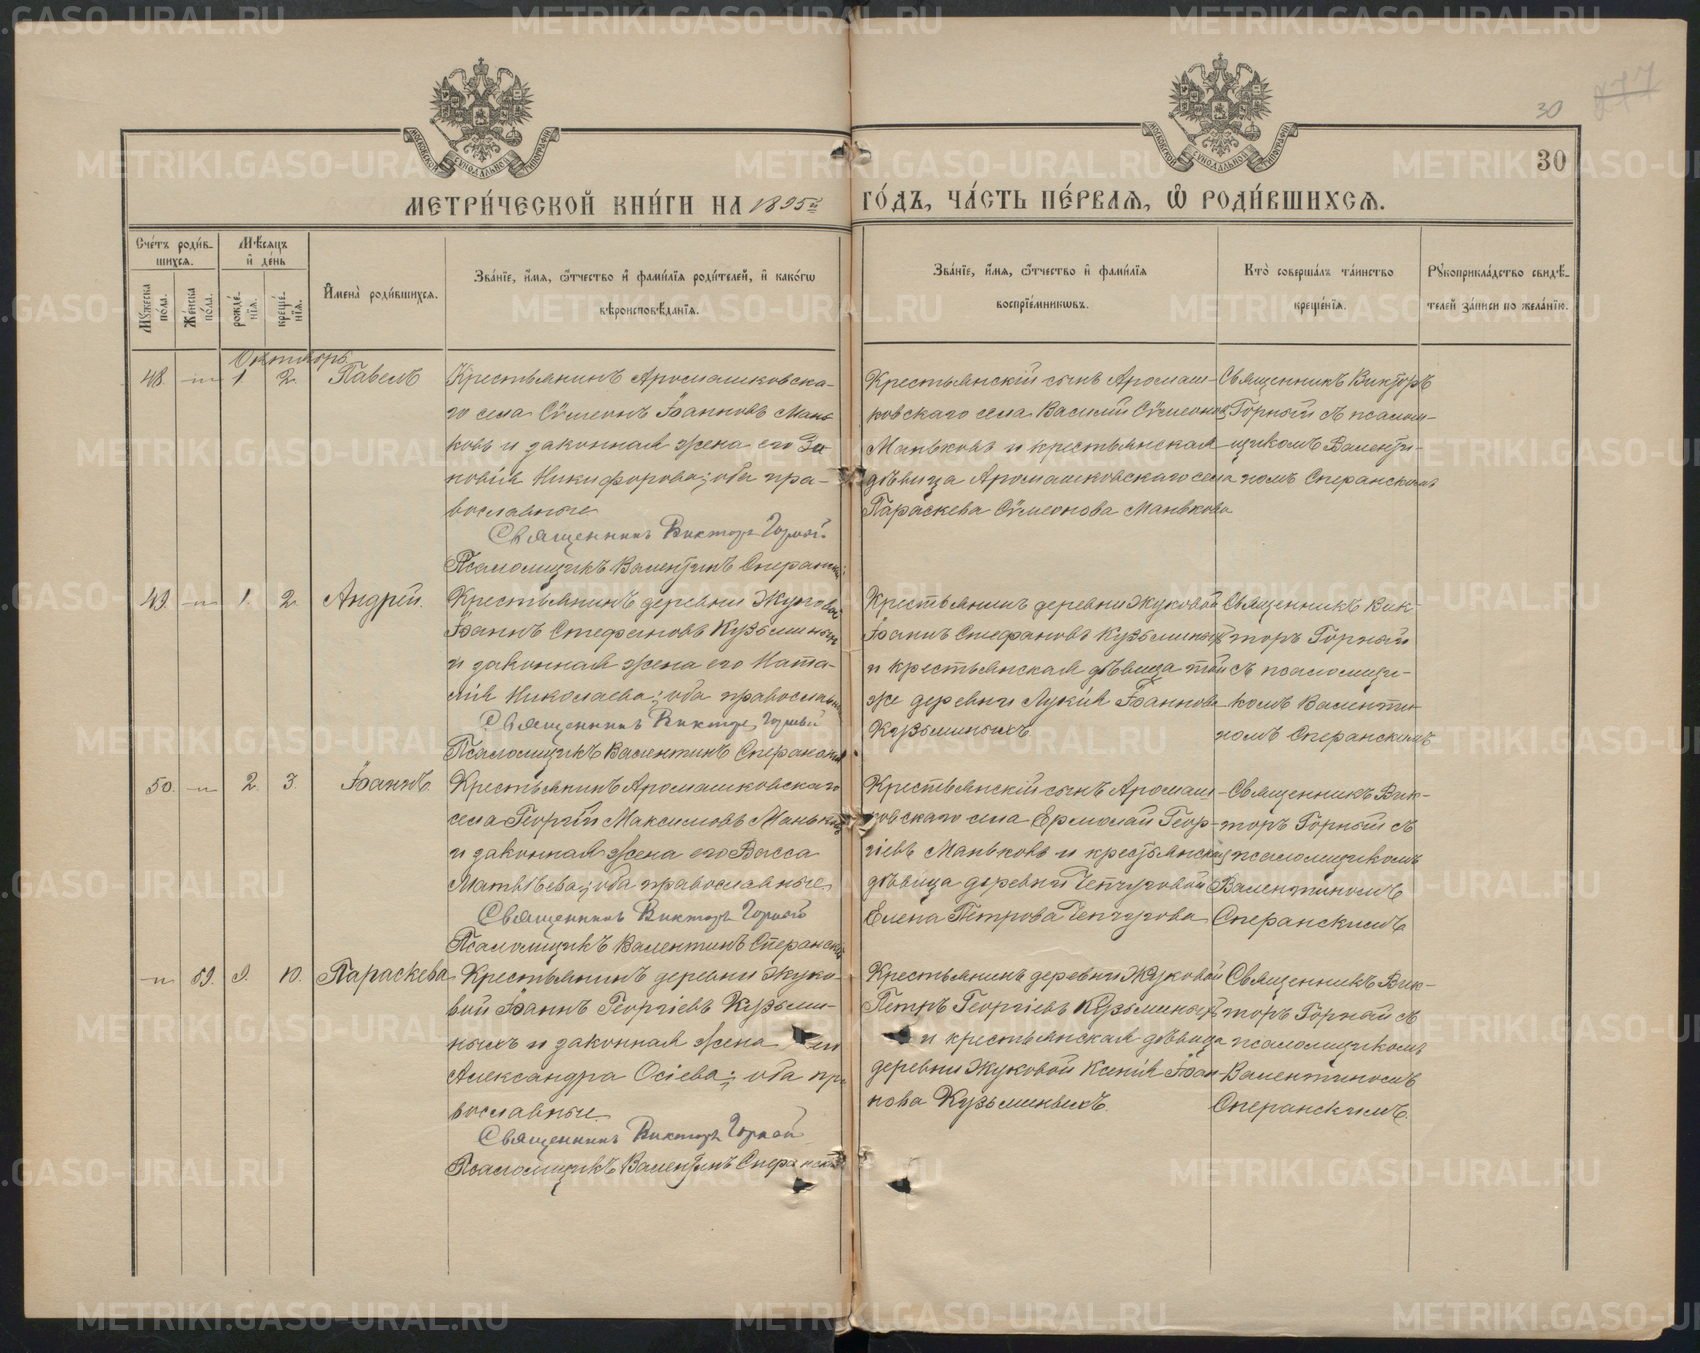 30
277
30
МОСКОВСКОЙ СѴНОДАЛЬНОЙ ТИПОГРАФІИ
МОСКОВСКОЙ СѴНОДАЛЬНОЙ ТИПОГРАФІИ
МЕТРИ́ЧЕСКОЙ КНИ́ГИ НА 1895й ГО́ДЪ, ЧА́СТЬ ПЕ́РВАѦ, Ѡ҆ РОДИ́ВШИХСѦ.
Сче́тъ роди́в-
шихсѧ.
Мꙋжеска по́ла.
Же́нска по́ла.
Мѣ́сѧцъ
и҆ де́нь
рожде́-
нїѧ.
креще́-
нїѧ.
И҆мена̀ роди́вшихсѧ.
Зва́нїе, и҆́мѧ, ѻ҆́тчество и҆ фами́лїѧ роди́телей, и҆ како́гѡ
вѣроисповѣ́данїѧ.
Зва́нїе, и҆́мѧ, ѻ҆́тчество и҆ фами́лїѧ
воспрїе́мникѡвъ.
Кто̀ соверша́лъ та́инство
креще́нїѧ.
Рꙋкоприкла́дство свидѣ́-
телей за́писи по жела́нїю.
Октябрь.
48. -„- 1 2. Павелъ
Крестьянинъ Аромашковска-
го села Сѵмеонъ Іоанновъ Мань-
ковъ и законная жена его Зи
новія Никифорова; оба пра-
вославные.
Священникъ Викторъ Горный
Псаломщикъ Валентинъ Сперанскій
Крестьянскій сынъ Аромаш-
ковскаго села Василій Сѵмеоновъ
Маньковъ и крестьянская
дѣвица Аромашковскаго села
Параскева Сѵмеонова Манькова
Священникъ Викторъ
Горный съ псалом-
щикомъ Валенти-
номъ Сперанскимъ
49. -„- 1. 2. Андрей.
Крестьянинъ деревни Жуковой
Іоаннъ Стефановъ Кузьминыхъ
и законная жена его Ната-
лія Николаева; оба православные
Священникъ Викторъ Горный
Псаломщикъ Валентинъ Сперанскій
Крестьянинъ деревни Жуковой
Іоаннъ Стефановъ Кузьминыхъ
и крестьянская дѣвица той
же деревни Лукія Іоаннова
Кузьминыхъ
Священникъ Вик-
торъ Горный
съ псаломщи-
комъ Валенти
номъ Сперанскимъ
50. -„- 2. 3. Іоаннъ.
Крестьянинъ Аромашковскаго
села Георгій Максимовъ Маньковъ
и законная жена его Васса
Матвѣева; оба православные.
Священникъ Викторъ Горный
Псаломщикъ Валентинъ Сперанскій
Крестьянскій сынъ Аромаш-
ковскаго села Ермолай Геор-
гіевъ Маньковъ и крестьянская
дѣвица деревни Чепчуговой
Елена Петрова Чепчугова
Священникъ Вик-
торъ Горный съ
псаломщикомъ
Валентиномъ
Сперанскимъ
-„- 59. 9. 10. Параскева
Крестьянинъ деревни Жуко-
вой Іоаннъ Георгіевъ Кузьми-
ныхъ и законная жена его
Александра Осіева; оба пра
вославные.
Священникъ Викторъ Горный
Псаломщикъ Валентинъ Сперанскій
Крестьянинъ деревни Жуковой
Петръ Георгіевъ Кузьминыхъ
и крестьянская дѣвица
деревни Жуковой Ксенія Іоан-
нова Кузьминыхъ.
Священникъ Вик-
торъ Горный съ
псаломщикомъ
Валентиномъ
Сперанскимъ.
METRIKI.GASO-URAL.RU